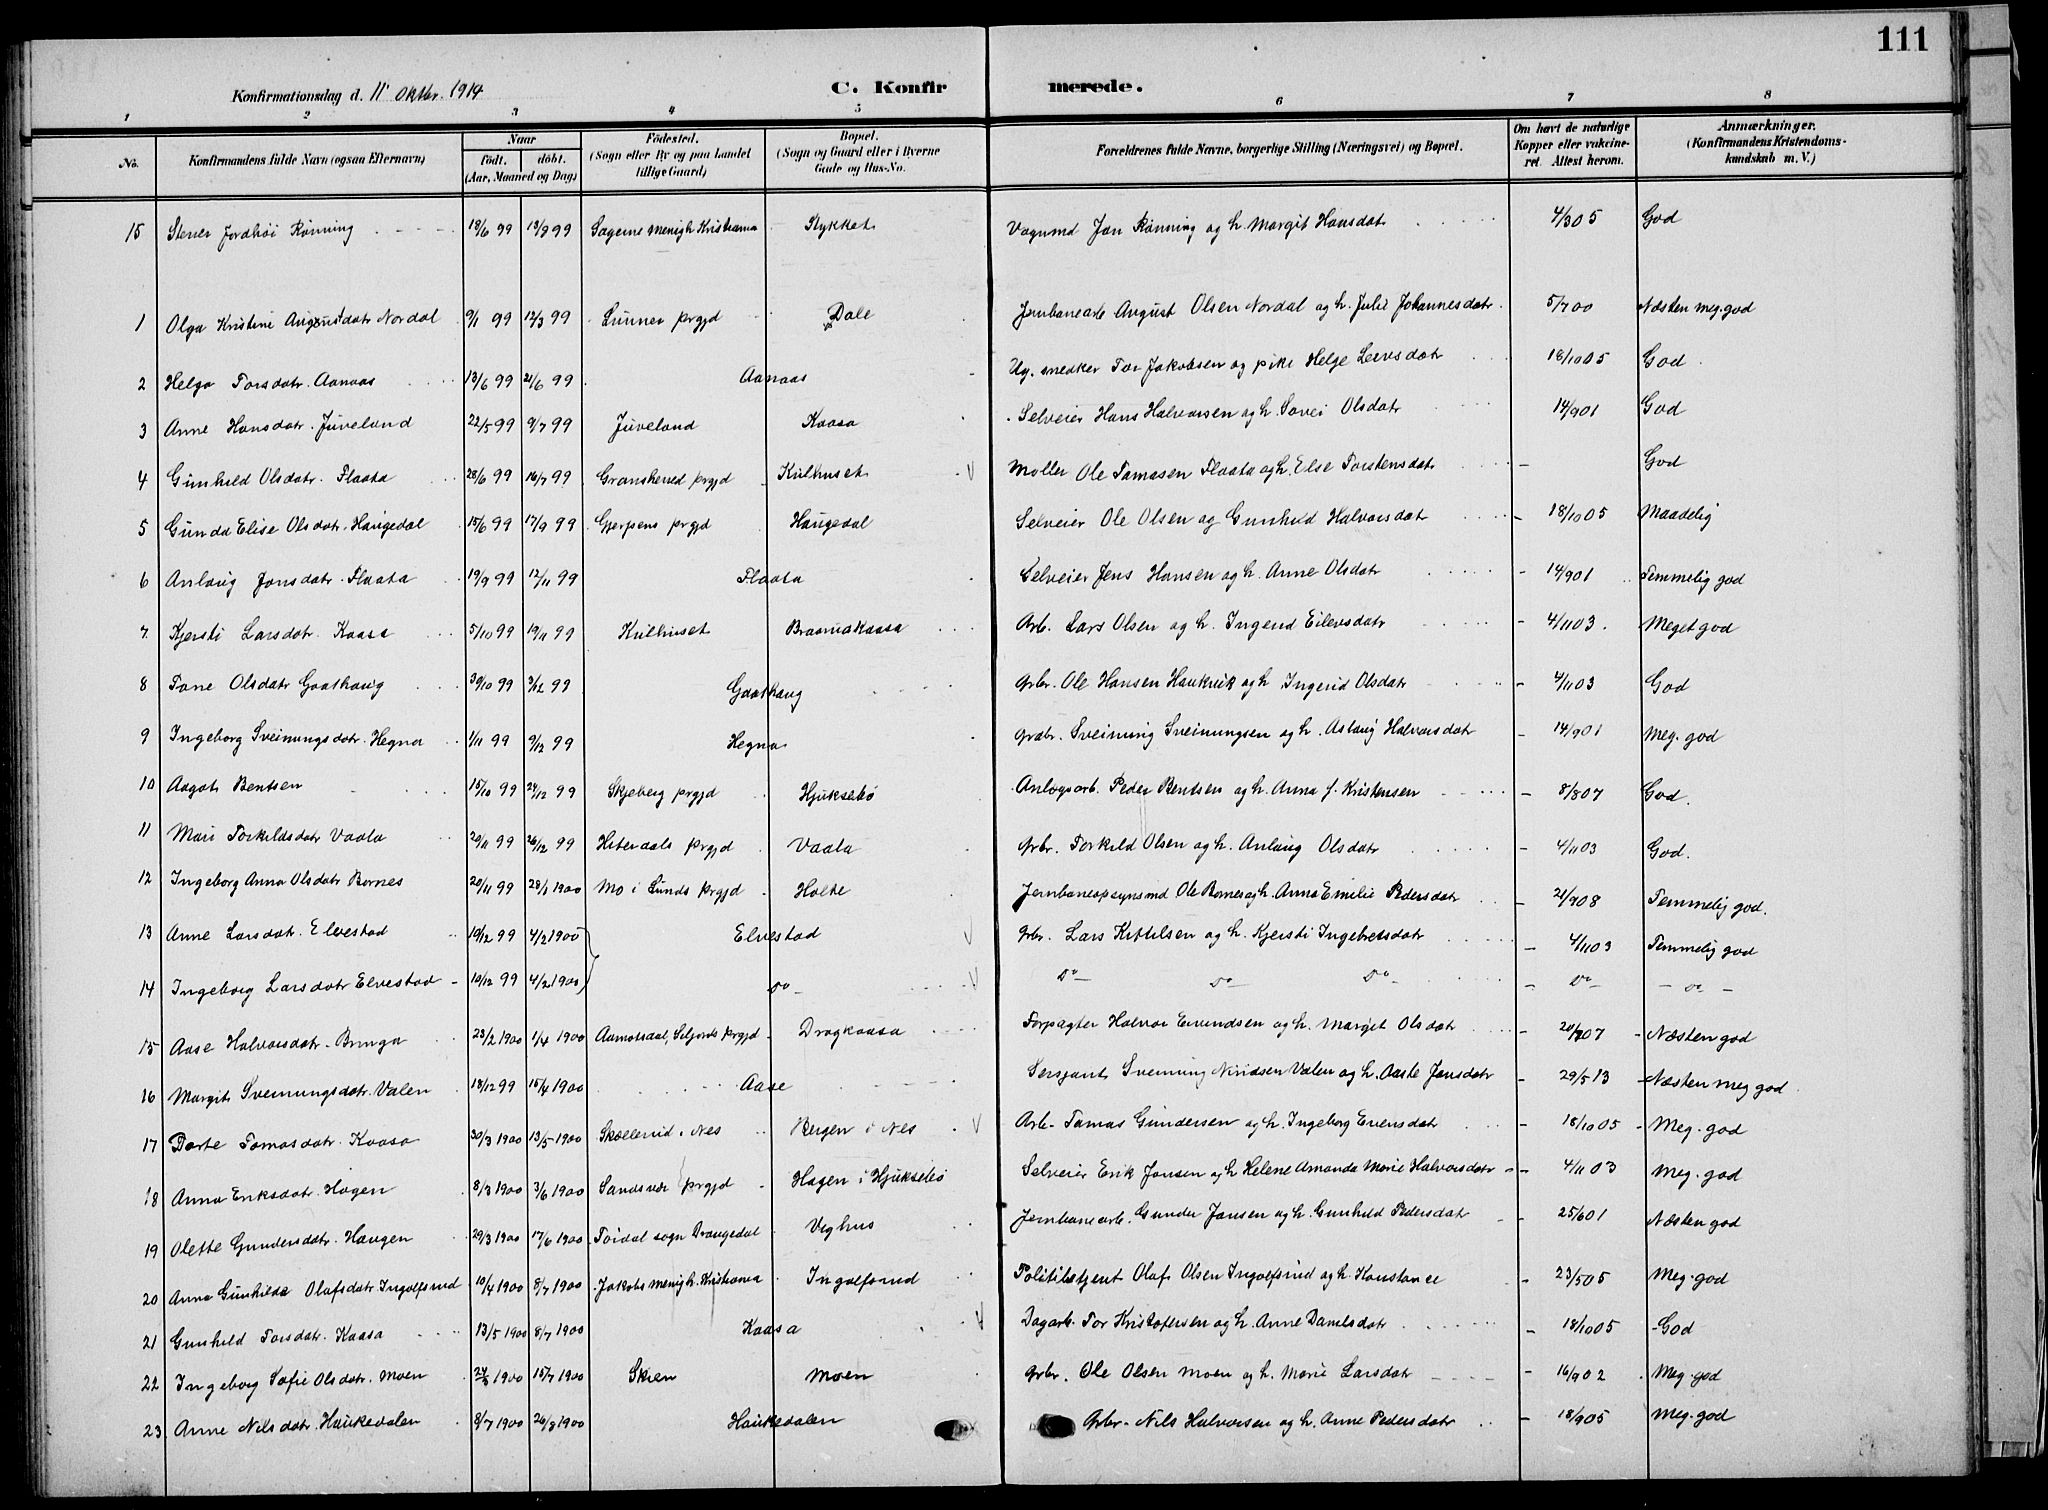 111
Konfirmationsdag d. 11' Oktbr. 1914 C. Konfirmerede.
1 2 3 4 5 6 7 8
No. Konfirmandens fulde Navn (ogsaa Efternavn) Naar født. døbt. (Aar, Maaned og Dag) Fødested. (Sogn eller By og paa Landet tillige Gaard) Bopæl. (Sogn og Gaard eller i Byerne Gade og Hus-No. Forældrenes fulde Navne, borgerlige Stilling (Næringsvei) og Bopæl. Om havt de naturlige Kopper eller vakcineret. Attest herom. Anmærkninger. (Konfirmandens Kristendomskundskab m. V.)
15 Stener Jordhøi Rønning 19/6 99 13/9 99 Sagene menigh. Kristiania Rykket Vognmd Jon Rønning og h. Margit Hansdatr 4/3 05 God
1 Olga Kristine Augustdatr Nordal 9/1 99 12/3 99 Lunner prgjd Dale Jernbanearb August Olsen Nordal og h. Julie Johannesdatr 5/7 00 Næsten meg. god
2 Helga Torsdatr. Aanaas 13/6 99 21/6 99 Aanaas Ug. snedker Tor Jakobsen og pike Helge Leevsdatr 18/10 05 God
3 Anne Hansdatr. Juveland 22/5 99 9/7 99 Juveland Kaasa Selveier Hans Halvorsen og h. Sovei Olsdatr 14/9 01 God
4 Gunhild Olsdatr. Flaata 28/6 99 16/7 99 Gransherred prgjd Kulhuset Møller Ole Tamasen Flaata og h. Else Torstensdatr - God
5 Gunda Elise Olsdatr. Haugedal 15/6 99 17/9 99 Gjerpens prgjd Haugedal Selveier Ole Olsen og Gunhild Halvorsdatr - 18/10 05 Maadelig
6 Anlaug Jensdatr. Flaata 19/9 99 12/11 99 Flaata Selveier Jens Hansen og h. Anne Olsdatr - 14/9 01 Temmelig god
7 Kjersti Larsdatr. Kaasa 5/10 99 19/11 99 Kulhuset Braanakaasa Arb. Lars Olsen og h. Ingerid Eilevsdatr - 4/11 03 Meget god
8 Tone Olsdatr Gaathaug 30/10 99 3/12 99 Gaathaug Gbr. Ole Hansen Haukvik og h. Ingerid Olsdatr - 4/11 03 God
9 Ingeborg Sveinungsdatr. Hegna 1/11 99 9/12 99 Hegna Gbr. Sveinung Sveinungsen og h. Aslaug Halvorsdatr - 14/9 01 Meg. god
10 Aagot Bentsen 15/10 99 24/12 99 Skjeberg prgjd Hjuksebø Anlægsarb. Peder Bentsen og h. Anna f. Kristensen - 8/8 07 God.
11 Mari Torkildsdatr Vaala 29/11 99 26/12 99 Hiterdals prgjd Vaala Gbr. Torkild Olsen og h. Anlaug Olsdatr - 4/11 03 God.
12 Ingeborg Anna Olsdatr Bornes 20/11 99 28/1 1900 Mo i Lunds prgjd Holte Jernbaneopsynsmd Ole Bornes og h. Anna Emilie Pedersdatr - 21/9 08 Temmelig god.
13 Anne Larsdatr. Elvestad 10/12 99 4/2 1900 Elvestad Gbr. Lars Kittilsen og h. Kjersti Ingebretsdatr - 4/11 03 Temmelig god
14 Ingeborg Larsdatr Elvestad 10/12 99 4/2 1900 Do Do Do Do - Do - Do -
15 Aase Halvorsdatr. Bringa 23/2 1900 1/4 1900 Aamotsdal, Seljords prgjd Dragkaasa Forpagter Halvor Eivindsen og h. Margit Olsdatr - 20/7 07 Næsten god
16 Margit Sveinungsdatr. Valen 18/12 99 15/4 1900 Aase Sersjant Sveinung Niridsen Valen og h. Aaste Jonsdatr - 29/5 13 Næsten meg god
17 Dorte Tomasdatr. Kaasa 30/3 1900 13/5 1900 Skollerud i Nes Bergen i Nes Arb. Tamas Gundersen og h. Ingeborg Evensdatr - 18/10 05 Meg. god
18 Anna Eriksdatr. Hagen 8/3 1900 3/6 1900 Sandsvær prgjd Hagen i Hjuksebø Selveier Erik Jansen og h Helene Amanda Marie Halvorsdatr - 4/11 03 Meg. god
19 Olette Gundersdatr. Haugen 29/3 1900 17/6 1900 Tørdal sogn Drangedal Veghus Jernbanearb. Gunder Jansen og h. Gunhild Pedersdatr - 25/6 01 Næsten god
20 Anna Gunhilda Olafsdatr Ingolfsrud 10/4 1900 8/7 1900 Jakobs menigh. Kristiania Ingolfsrud Politibetjent Olaf Olsen Ingolfsrud og h. Konstance - 23/5 05 Meg. god
21 Gunhild Torsdatr. Kaasa 13/5 1900 8/7 1900 Kaasa Dagarb. Tor Kristofersen og h. Anne Danielsdatr - 18/10 05 God
22 Ingeborg Sofie Olsdatr. Moen 1900 15/7 1900 Skien Moen Gbr. Ole Olsen Moen og h. Marie Larsdatr - 16/9 02 Meg. god
23 Anne Nilsdatr. Haukedalen 8/7 1900 26/8 1900 Haukedalen Gbr. Nils Halvorsen og h. Anne Pedersdatr - 18/9 05 Meg. god